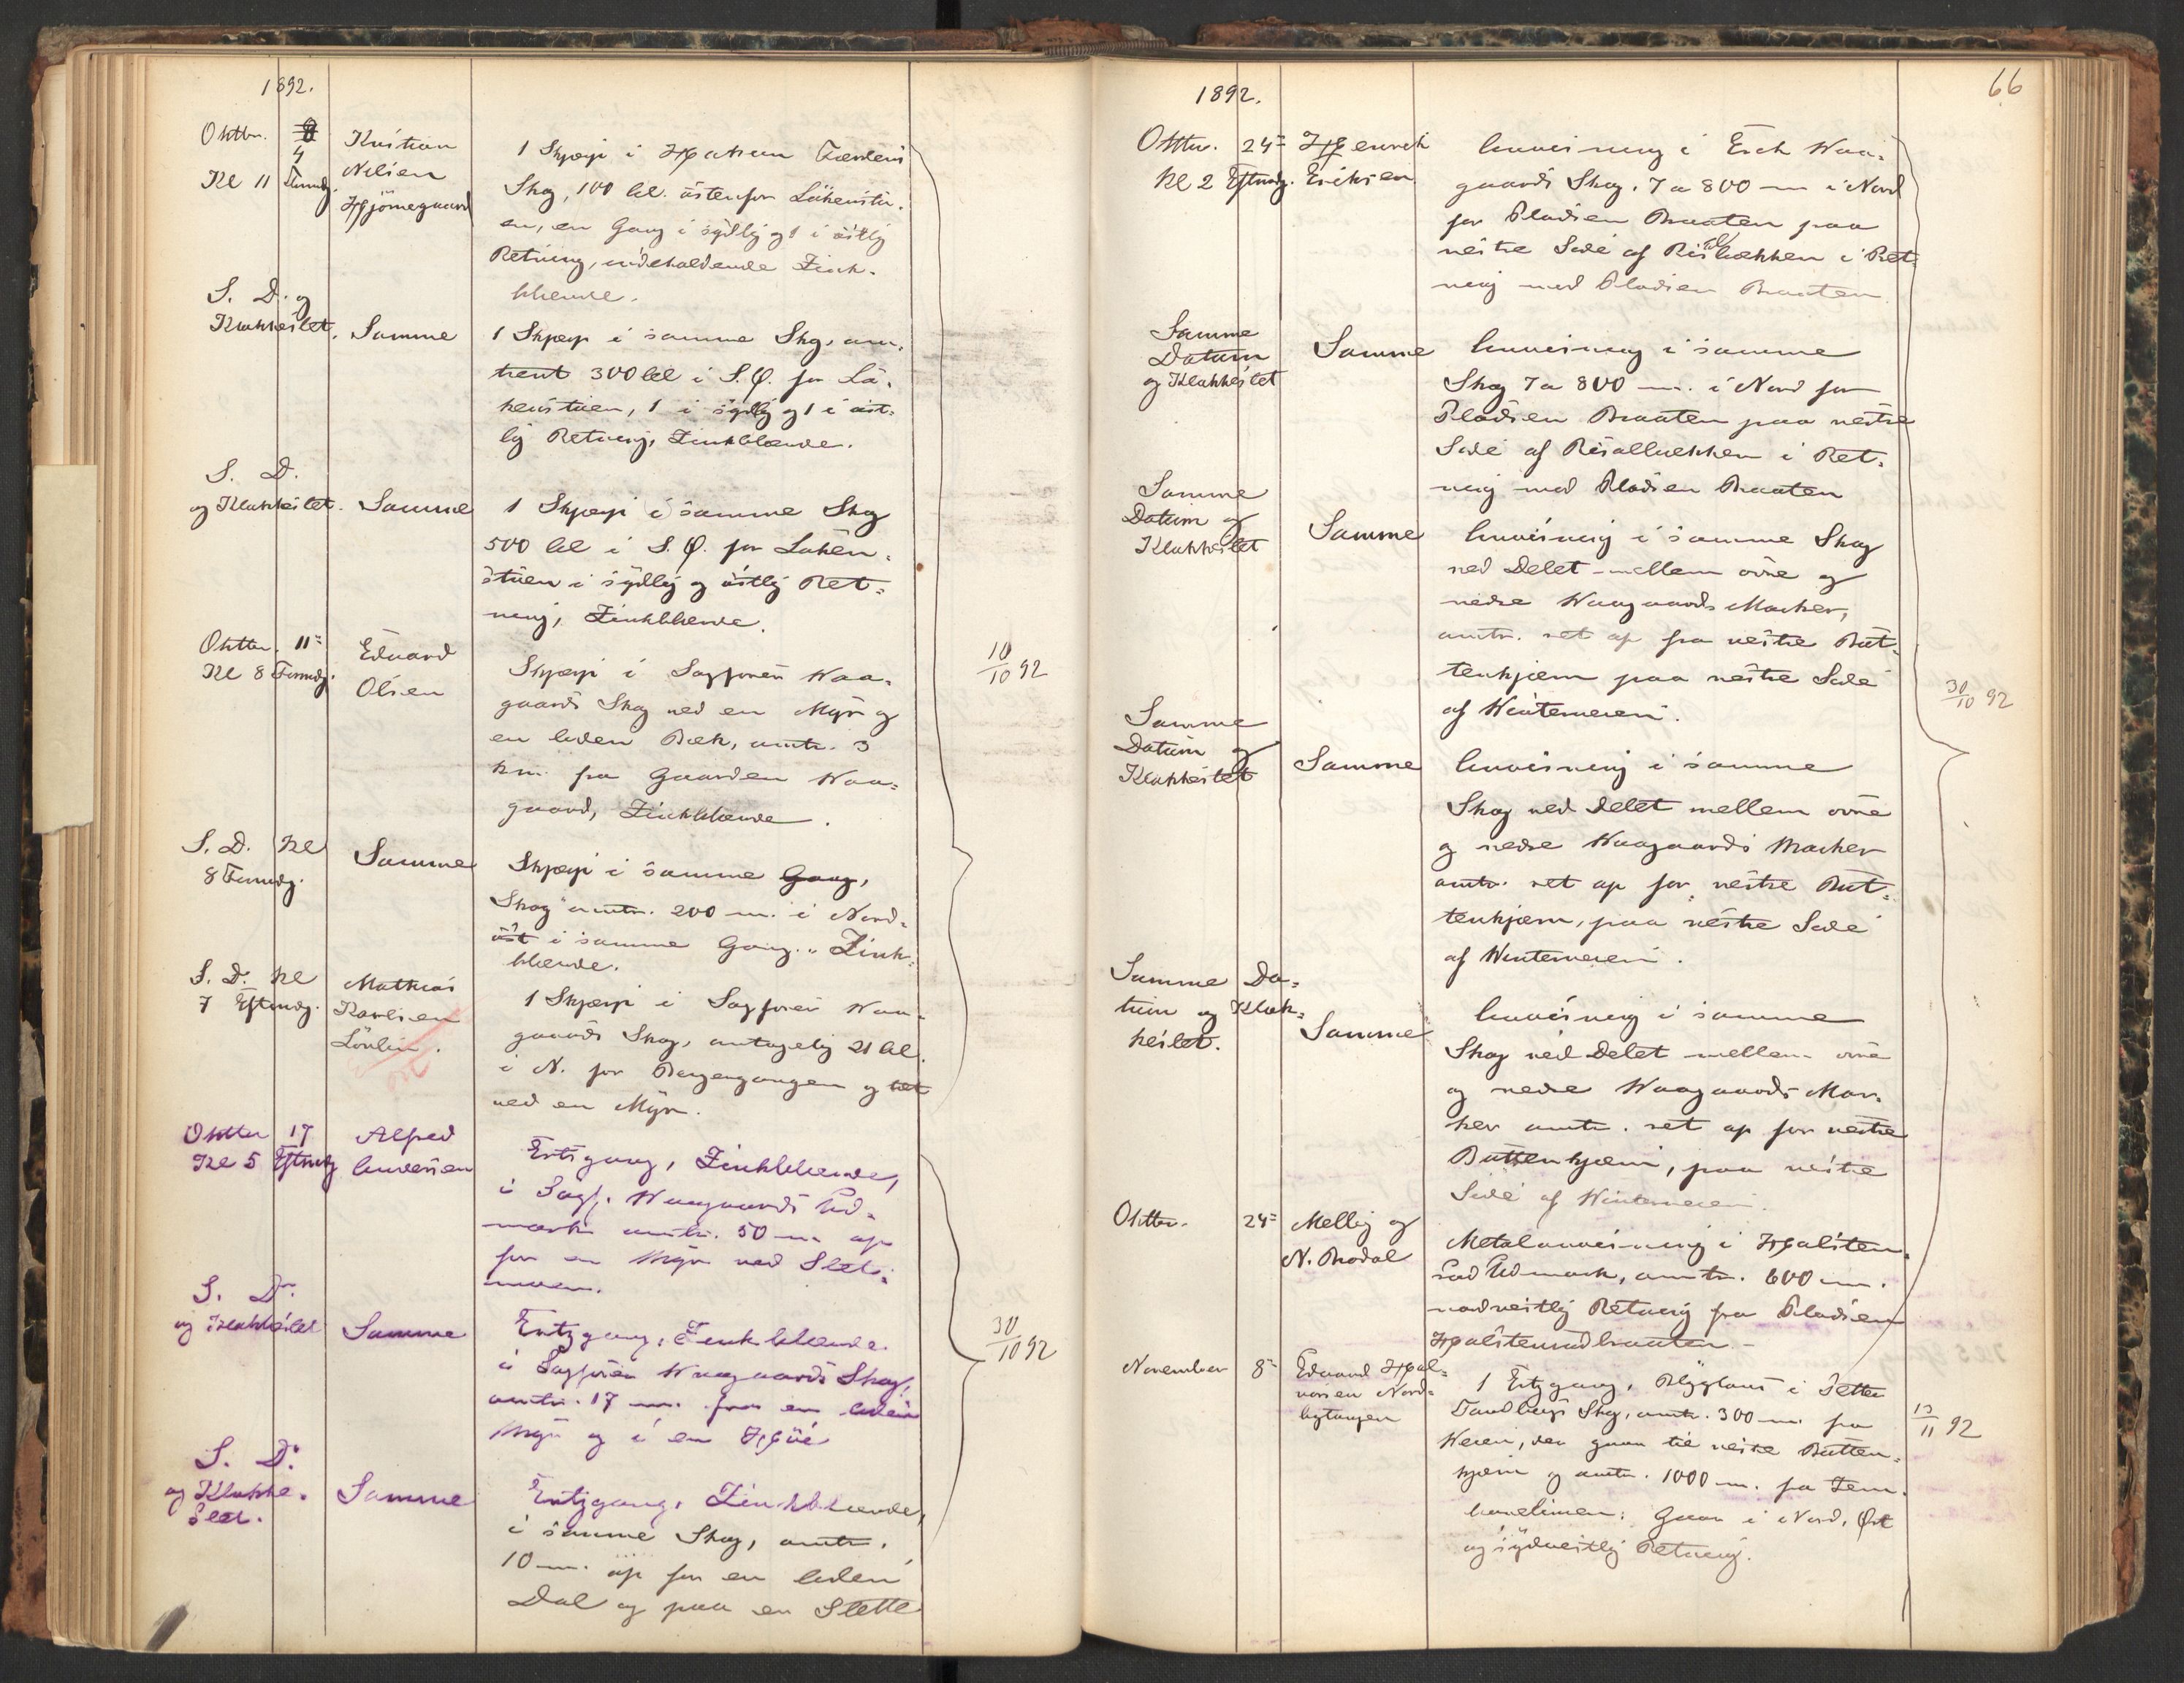 1892.
Oktbr. 8 4 Kristian
Kl 11 Formdg. Nilsen
Hjörnegaard
1 Skjærp i Hakum Færdens
Skog, 100 al. östenfor Lökenstu-
en, en Gang i sydlig og 1 i östlig
Retning, indeholdende Zink-
blende.
S. D. og
Klokkeslet. Samme
1 Skjærp i samme Skog, om-
trent 300 al i S.Ø. for Lö-
kenstuen, 1 i sydlig og 1 i öst-
lig Retning, Zinkblende.
S. D.
og Klokkeslet. Samme
1 Skjærp i samme Skog
500 al i S.Ø. for Löken-
stuen i sydlig og östlig Ret-
ning, Zinkblende.
Oktbr. 11te Edvard
Kl 8 Formdg. Olsen
Skjærp i Sagfören Waa-
gaards Skog ved en Myr og
en liden Bæk, omtr. 3
km. fra Gaarden Waa-
gaard, Zinkblende.
10/10 92
S. D. Kl
8 Formdg. Samme
Skjærp i samme Gang,
Skog omtr. 200 m. i Nord-
öst i samme Gang. Zink-
blende.
S. D. Kl Mathias
7 Eftmdg. Karlsen
1 Skjærp i Sagfören Waa-
gaards Skog, antagelig 21 al.
i N. for Bergegangen og tæt
ved en Myr.
Oktbr 17 Alfred
Kl 5 Eftmdg Andersen
Ertsgang, Zinkblende,
i Sagf. Waagaards Ud-
mark omtr. 50 m op
for en Myr ved Slets-
moen.
S. D.
og Klokkeslet Samme
Ertzgang, Zinkblende
i Sagfören Waagaards Skog,
omtr. 17 m. fra en liden
Myr og i en Høi
30/10 92
S. D.
og Klokke-
slet. Samme
Ertzgang, Zinkblende,
i samme Skog, omtr.
10 m. op for en liden
Dal og paa en Slette
66
1892.
Oktbr. 24de Henrik
Kl 2 Eftmdg. Eriksen
Anvisning i Erik Waa-
gaards Skog, 7 a 800 m i Nord
for Pladsen Braaten paa
vestre Side af Risalbækken i Ret-
ning med Pladsen Braaten.
Samme
Datum
og Klokkeslet Samme
Anvisning i samme
Skog 7 a 800 m. i Nord for
Pladsen Braaten paa vestre
Side af Risalbækken i Ret-
ning med Pladsen Braaten
Samme
Datum og
Klokkeslet Samme
Anvisning i samme Skog
ved Delet mellem övre og
nedre Waagaards Marker,
omtr. ret op fra vestre But-
tenkjern paa vestre Side
af Winterveien.
30/10 92
Samme
Datum og
Klokkeslet Samme
Anvisning i samme
Skog ved Delet mellem övre
og nedre Waagaards Marker
omtr. ret op for vestre But-
tenkjern, paa vestre Side
af Winterveien.
Samme Da-
tum og Klok-
keslet. Samme
Anvisning i samme
Skog ved Delet mellem övre
og nedre Waagaards Mar-
ker omtr. ret op for vestre
Buttenkjern, paa vestre
Side af Winterveien.
Oktbr. 24de Melby og
N. Brodal
Metalanvisning i Halsten-
rud Udmark, omtr. 600 m.
nordvestlig Retning fra Pladsen
Halstenrudbraaten -
November 8de Edvard Hal-
vorsen Nord-
bytangen
1 Ertzgang, Blyglans i Petter
Tandbergs Skog, omtr. 300 m. fra
Veien, der gaar til vestre Butten-
kjern og omtr. 1000 m. fra Jern-
banelinien; Gaar i Nord, Øst
og sydvestlig Retning.
13/11 92